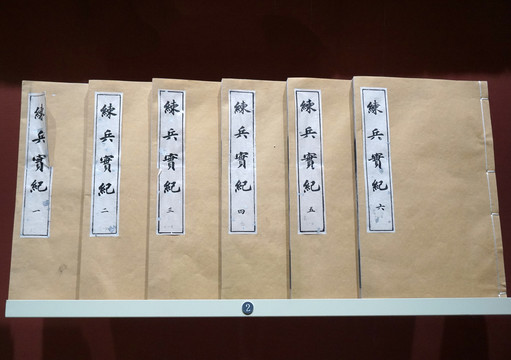 練兵實紀 一
練兵實紀 二
練兵實紀 三
練兵實紀 四
練兵實紀 五
練兵實紀 六
2